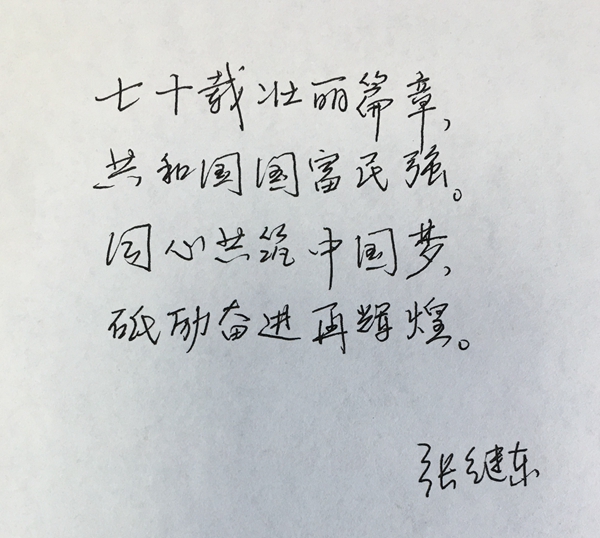 七十载壮丽篇章，
共和国国富民强。
同心共筑中国梦，
砥励奋进再辉煌。
张继东